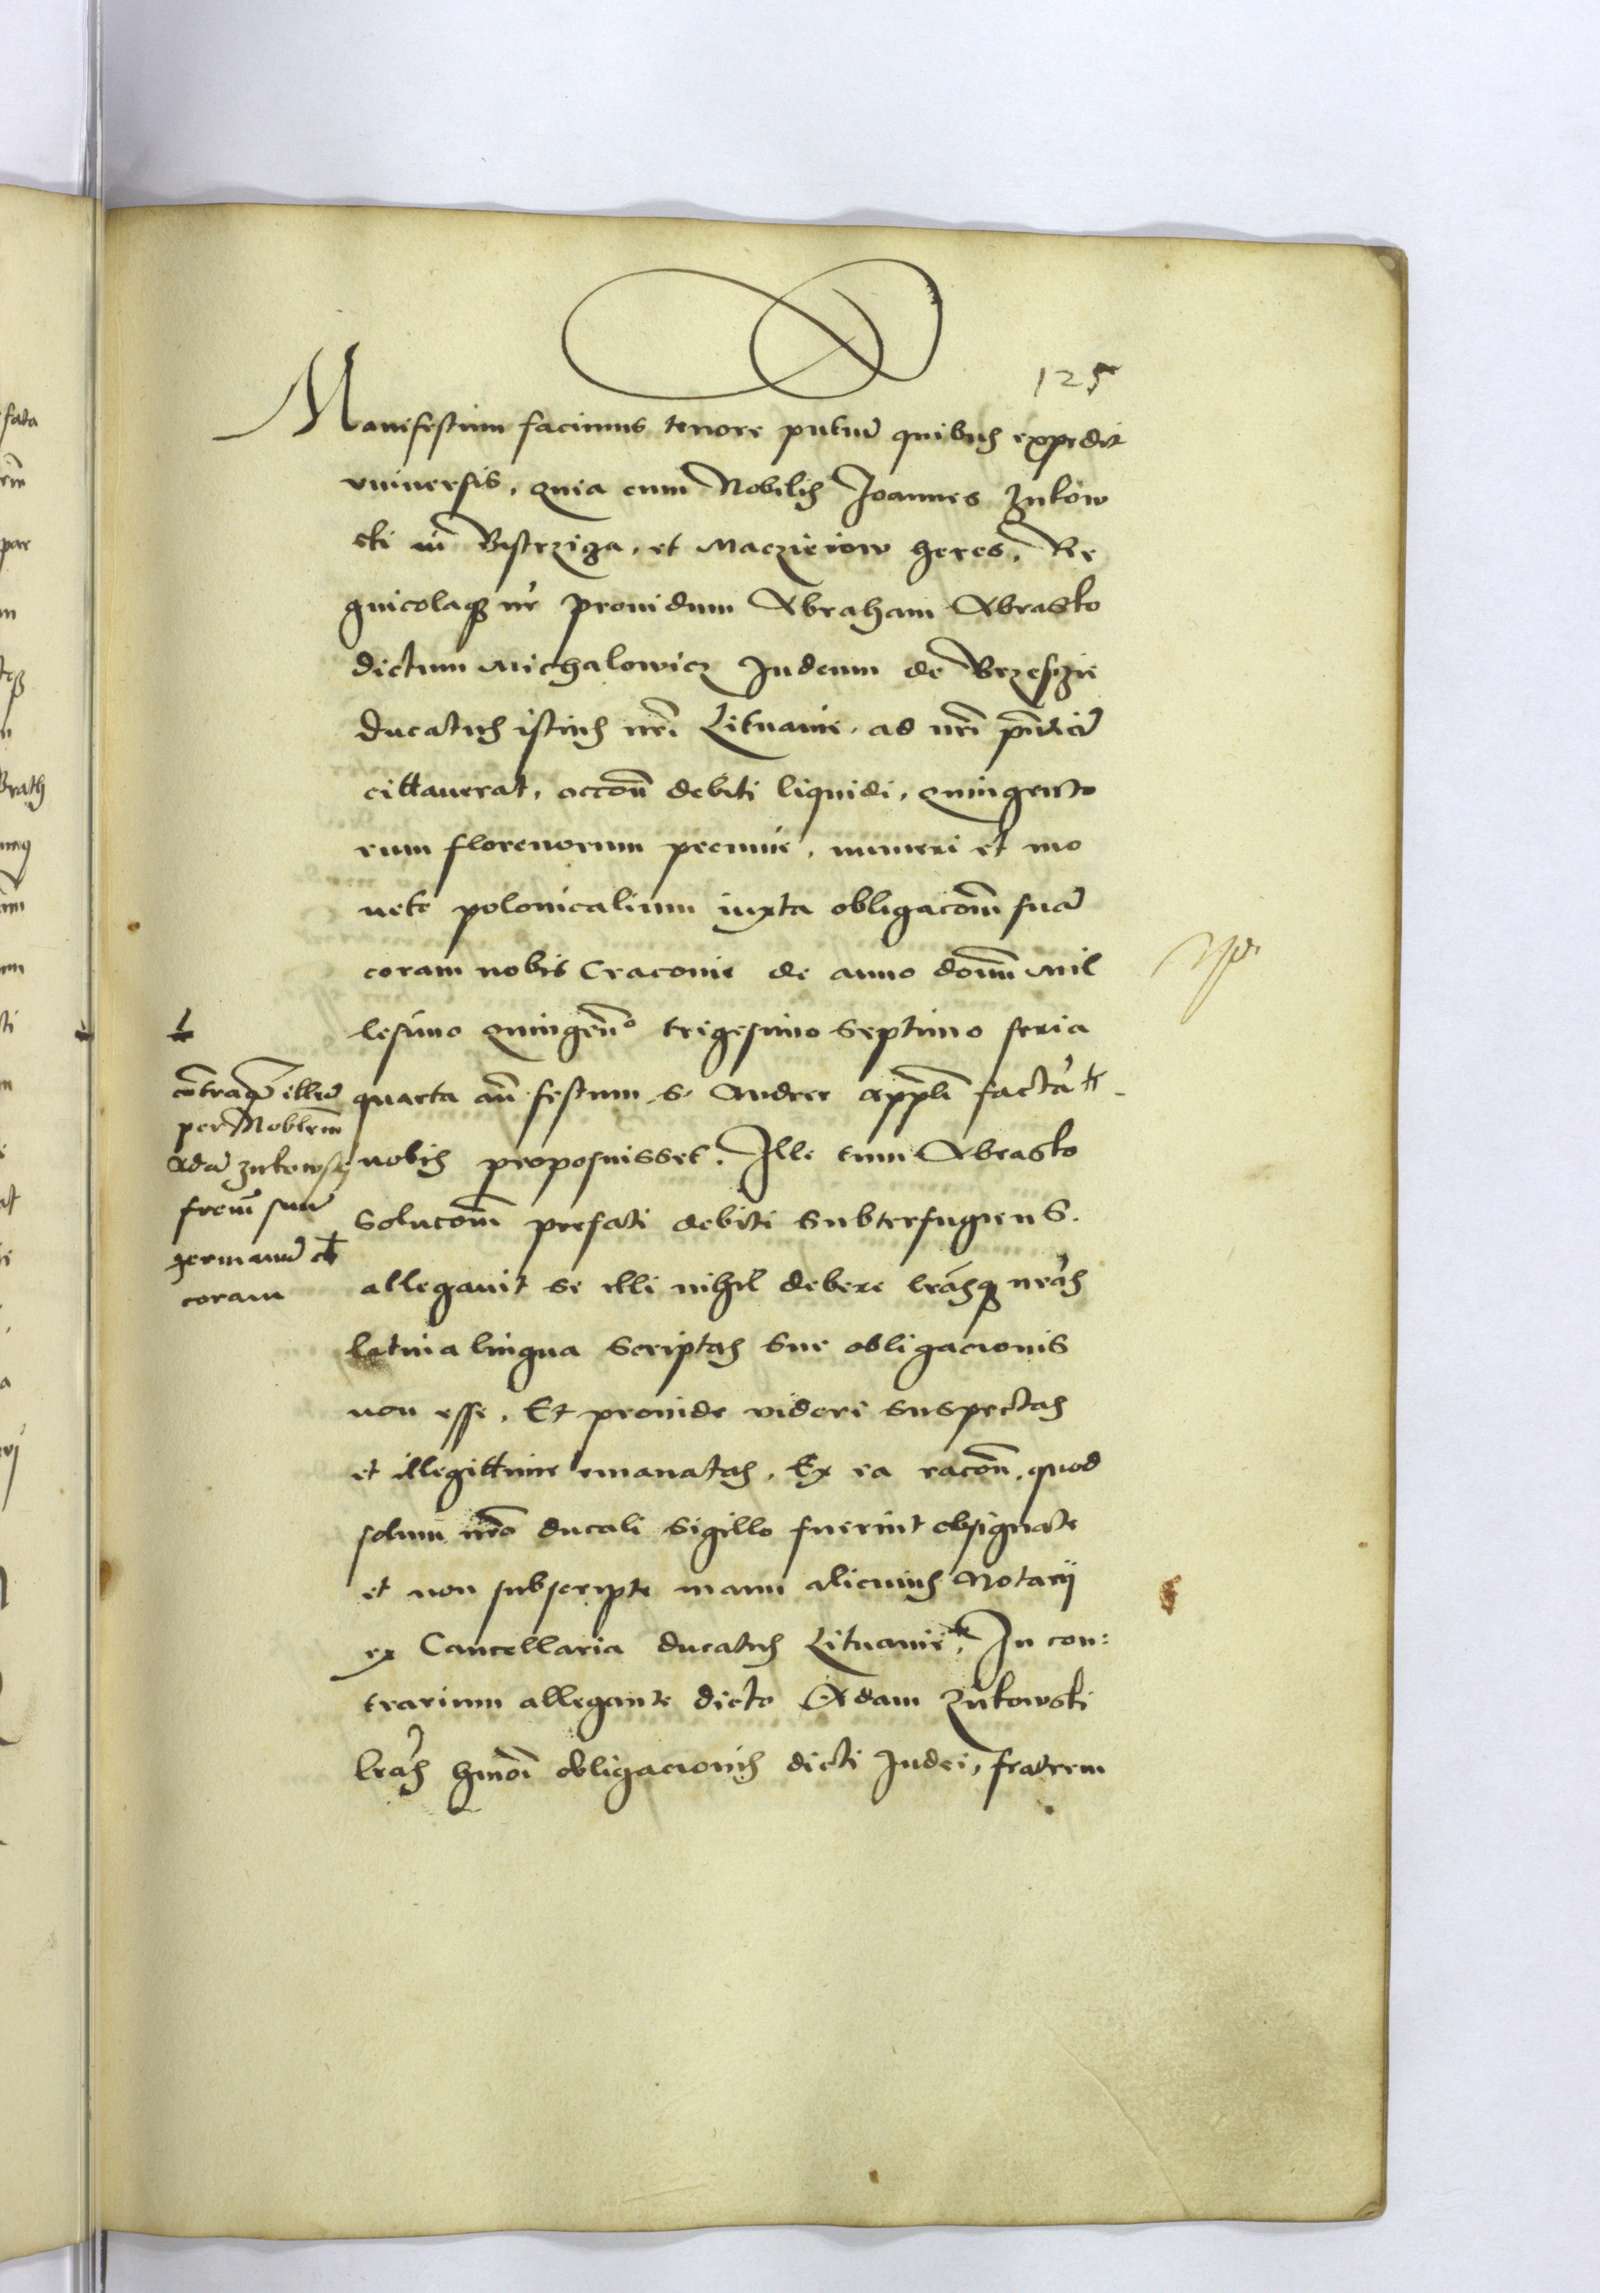 125
Manifestum facimus tenore pntium quibus expedit
vniuersis, quia cum Nobilis Joannes Zukow
ski in Bistrziga, et Maczieiow heres, Re
gnicolaqz nr prouidum Abraham Abrasko
dictum Michalowicz Judeum de Brzesczie
ducatus istius nri Lituanie, ad nri pntiā
cittauerat, accōn debiti liquidi, quingento
rum florenorum pecunie, numeri et mo
nete polonicalium iuxta obligacōm suā
coram nobis Craconie de anno domi Mil
lesimo quingēno trigesimo septimo feria
quarta an festum S. Andree appli factā
nobis proposuisset. Ille tum Abrasko
solucōm prefati debiti subterfugiens.
allegauit se illi nihil debere lrasqz nras
latina lingua scriptas sue obligacionis
non esse, Et proinde videri suspectas
et illegittime emanatas, Ex ea racōn, quod
solum nro ducali sigillo fuerint obsignate
et non subscripte manu alicuius Notarij
ex Cancellaria ducatus Lituanie, In con:
trarium allegante dicto Adam Zukowski
lras hmōi obligacionis dicti Judei, fratrem
cōtraqz illū
per Noblem
Adā Zukowsky
frem suū
germanū
coram